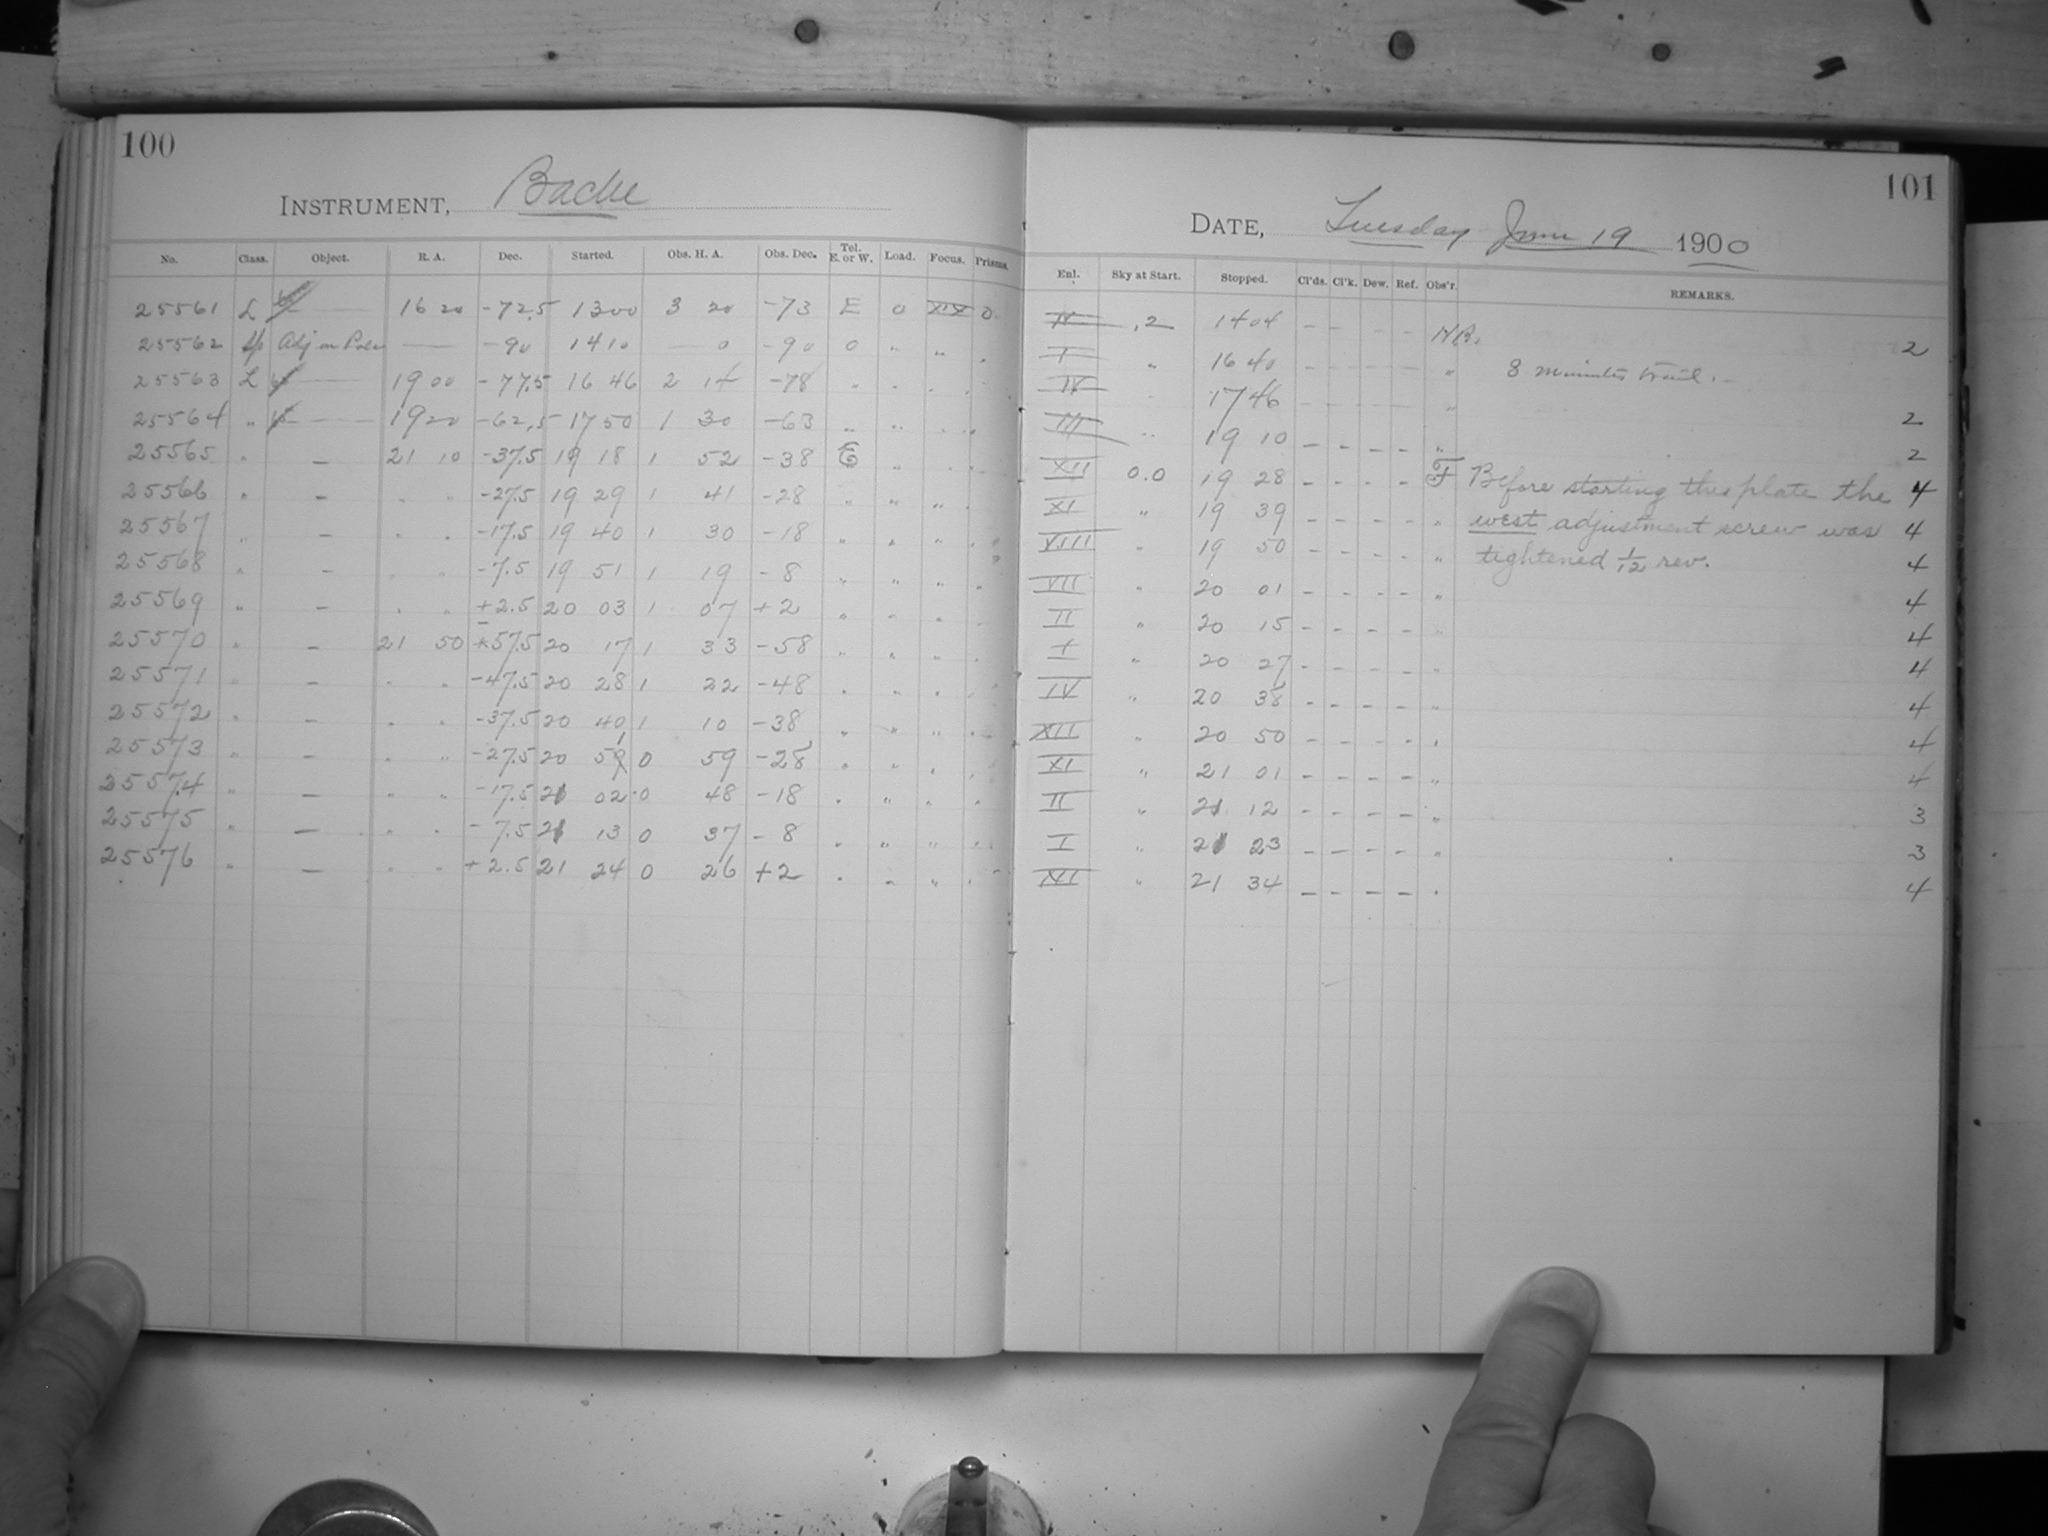 100
INSTRUMENT, Bache
No. Class. Object. R. A. Dec. Started. Obs. H. A. Obs. Dec. Tel. E. or W. Load. Focus. Prisms.
25561 L — 16 20 -72.5 13 00 3 20 -73 E 0 XIX 0.
25562 Sp Adj on Pole — -90 14 10 — 0 -90 0 " " "
25563 L — 19 00 -77.5 16 46 2 14 -78 " " " "
25564 " — 19 20 -62.5 17 50 1 30 -63 " " " "
25565 " — 21 10 -37.5 19 18 1 52 -38 E " " "
25566 " — " " -27.5 19 29 1 41 -28 " " " "
25567 " — " " -17.5 19 40 1 30 -18 " " " "
25568 " — " " -7.5 19 51 1 19 -8 " " " "
25569 " — " " +2.5 20 03 1 07 +2 " " " "
25570 " — 21 50 -57.5 20 17 1 33 -58 " " " "
25571 " — " " -47.5 20 28 1 22 -48 " " " "
25572 " — " " -37.5 20 40 1 10 -38 " " " "
25573 " — " " -27.5 20 51 0 59 -28 " " " "
25574 " — " " -17.5 21 02 0 48 -18 " " " "
25575 " — " " -7.5 21 13 0 37 -8 " " " "
25576 " — " " +2.5 21 24 0 26 +2 " " " "
101
DATE, Tuesday June 19 1900
Enl. Sky at Start. Stopped. Cl'ds. Cl'k. Dew. Ref. Obs'r. REMARKS.
IV .2 14 04 — — — — 2
I " 16 40 — — — — " 8 minutes trail.
IV " 17 46 — — — — " 2
III " 19 10 — — — — " 2
XII 0.0 19 28 — — — — F Before starting this plate the 4
XI " 19 39 — — — — " west adjustment screw was 4
VIII " 19 50 — — — — " tightened 1/12 rev. 4
VII " 20 01 — — — — " 4
II " 20 15 — — — — " 4
I " 20 27 — — — — " 4
IV " 20 38 — — — — " 4
XII " 20 50 — — — — " 4
XI " 21 01 — — — — " 4
II " 21 12 — — — — " 3
I " 21 23 — — — — " 3
" 21 34 — — — — " 4